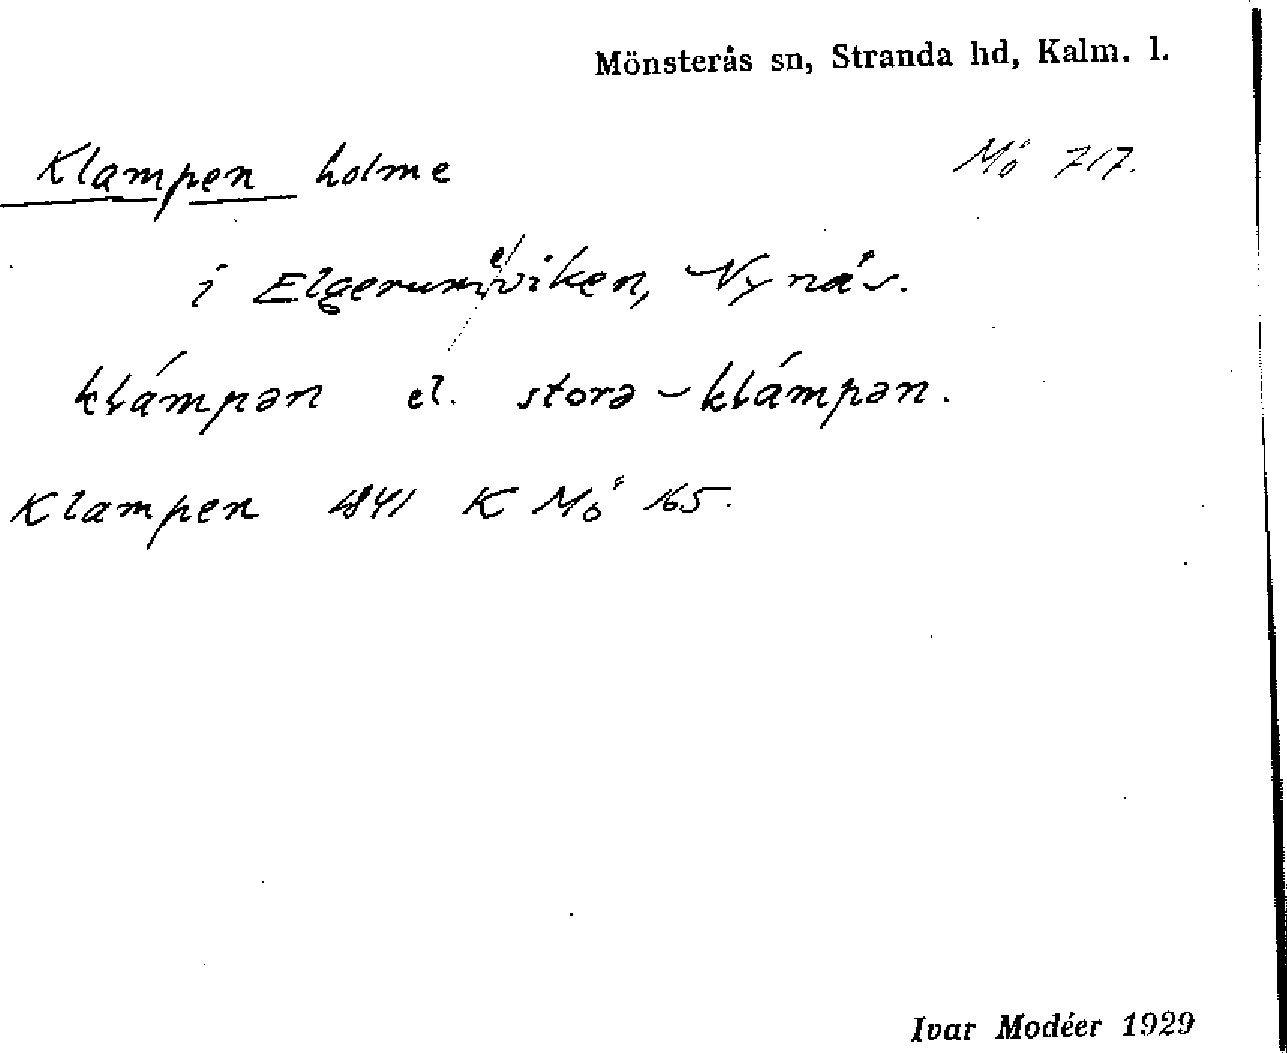 Mönsterås sn, Stranda hd, Kalm. l.
Klampen holme Mö 717.
i Elgerumeviken, Nynäs.
klámpən el. storə-klámpən.
Klampen 1841 K Mö 165.
Ivar Modéer 1929